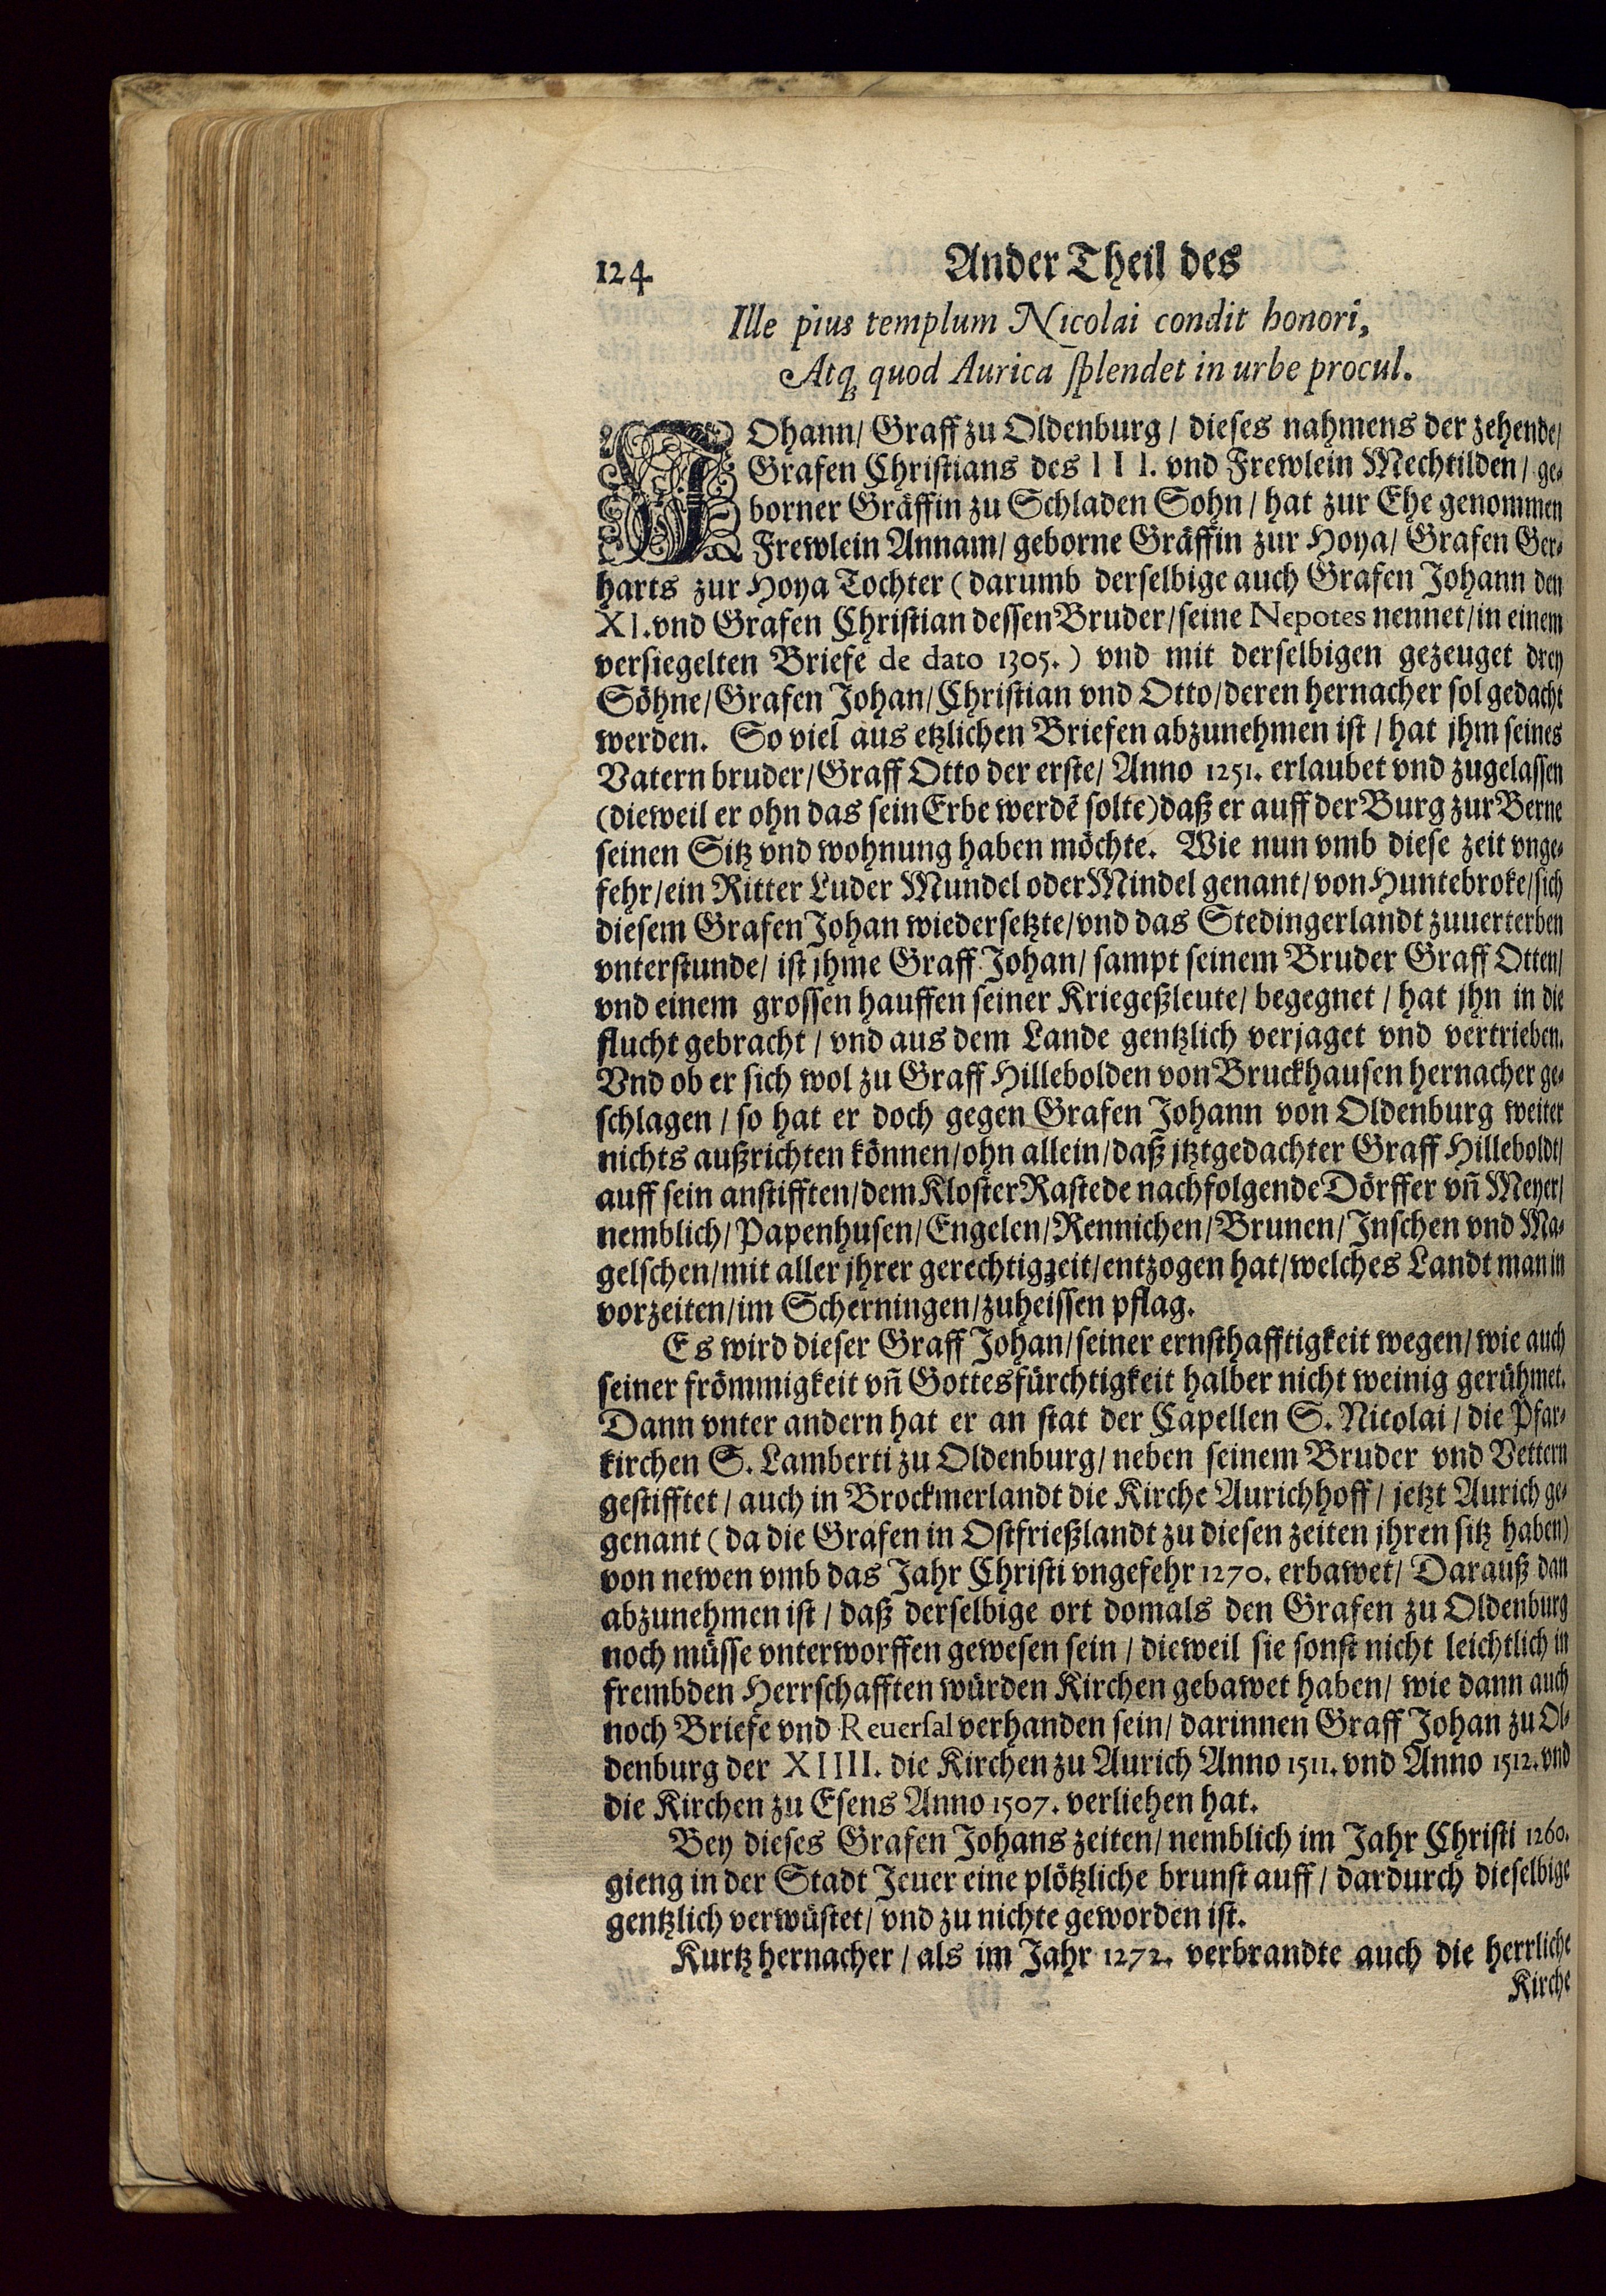 124 Ander Theil des
Ille pius templum Nicolai condit honori,
Atq; quod Aurica splendet in urbe procul.
JOhann/ Graff zu Oldenburg / dieses nahmens der zehende/
Grafen Christians des III. vnd Frewlein Mechtilden / ge-
borner Gräffin zu Schladen Sohn / hat zur Ehe genommen
Frewlein Annam/ geborne Gräffin zur Hoya/ Grafen Ger-
harts zur Hoya Tochter (darumb derselbige auch Grafen Johann den
XI. vnd Grafen Christian dessen Bruder/seine Nepotes nennet/in einem
versiegelten Briefe de dato 1305.) vnd mit derselbigen gezeuget drey
Söhne/Grafen Johan/Christian vnd Otto/deren hernacher sol gedacht
werden. So viel aus etzlichen Briefen abzunehmen ist / hat jhm seines
Vatern bruder/Graff Otto der erste/ Anno 1251. erlaubet vnd zugelassen
(dieweil er ohn das sein Erbe werdē solte)daß er auff der Burg zur Berne
seinen Sitz vnd wohnung haben möchte. Wie nun vmb diese zeit vnge-
fehr/ein Ritter Luder Mundel oder Mindel genant/von Huntebroke/sich
diesem Grafen Johan wiedersetzte/vnd das Stedingerlandt zuuerterben
vnterstunde/ ist jhme Graff Johan/ sampt seinem Bruder Graff Otten/
vnd einem grossen hauffen seiner Kriegeßleute/ begegnet / hat jhn in die
flucht gebracht / vnd aus dem Lande gentzlich verjaget vnd vertrieben.
Vnd ob er sich wol zu Graff Hillebolden von Bruckhausen hernacher ge-
schlagen / so hat er doch gegen Grafen Johann von Oldenburg weiter
nichts außrichten können/ohn allein/daß jtztgedachter Graff Hilleboldt/
auff sein anstifften/dem Kloster Rastede nachfolgende Dörffer vñ Meyer/
nemblich/Papenhusen/Engelen/Rennichen/Brunen/Inschen vnd Ma-
gelschen/mit aller jhrer gerechtigzeit/entzogen hat/welches Landt man in
vorzeiten/im Scherningen/zuheissen pflag.
Es wird dieser Graff Johan/seiner ernsthafftigkeit wegen/wie auch
seiner frömmigkeit vñ Gottesfürchtigkeit halber nicht weinig gerühmet.
Dann vnter andern hat er an stat der Capellen S. Nicolai / die Pfar-
kirchen S. Lamberti zu Oldenburg/ neben seinem Bruder vnd Vettern
gestifftet / auch in Brockmerlandt die Kirche Aurichhoff / jetzt Aurich ge-
genant (da die Grafen in Ostfrießlandt zu diesen zeiten jhren sitz haben)
von newen vmb das Jahr Christi vngefehr 1270. erbawet/ Darauß dan
abzunehmen ist / daß derselbige ort domals den Grafen zu Oldenburg
noch müsse vnterworffen gewesen sein / dieweil sie sonst nicht leichtlich in
frembden Herrschafften würden Kirchen gebawet haben/ wie dann auch
noch Briefe vnd Reuersal verhanden sein/ darinnen Graff Johan zu Ol-
denburg der XIIII. die Kirchen zu Aurich Anno 1511. vnd Anno 1512. vnd
die Kirchen zu Esens Anno 1507. verliehen hat.
Bey dieses Grafen Johans zeiten/ nemblich im Jahr Christi 1260.
gieng in der Stadt Jeuer eine plötzliche brunst auff / dardurch dieselbige
gentzlich verwüstet/ vnd zu nichte geworden ist.
Kurtz hernacher / als im Jahr 1272. verbrandte auch die herrliche
Kirche